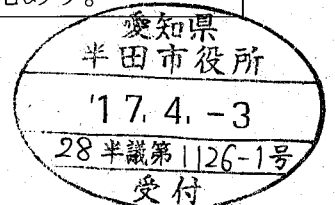 愛知県
半田市役所
'17. 4. -3
28半議第1126-1号
受付